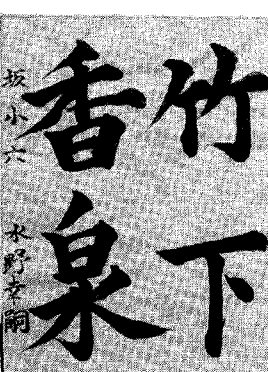 竹下
香泉
坂小六 水野幸嗣